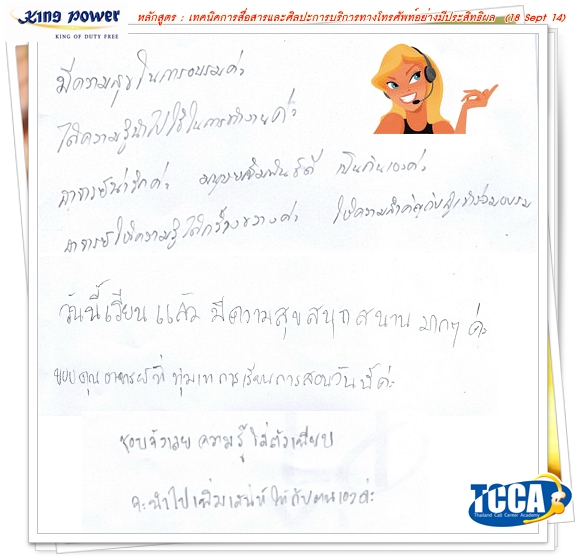 King Power
KING OF DUTY FREE
หลักสูตร : เทคนิคการสื่อสารและศิลปะการบริการทางโทรศัพท์อย่างมีประสิทธิผล (18 Sept 14)
มีความสุขในการอบรมค่ะ
ได้ความรู้นำไปใช้ในการทำงานค่ะ
อาจารย์น่ารักค่ะ มนุษยสัมพันธ์ดี เป็นกันเองค่ะ
อาจารย์ให้ความรู้ได้กว้างขวางค่ะ ให้ความสำคัญกับผู้เข้าร่วมอบรม
วันนี้เรียนแล้ว มีความสุขสนุกสนาน มากๆ ค่ะ
ขอบคุณ อาจารย์ที่ ทุ่มเท การเรียนการสอนวันนี้ค่ะ
ชอบจังเลย ความรู้
จะนำไปเพิ่มเสน่ห์ให้กับตนเองค่ะ
TCCA
Thailand Call Center Academy